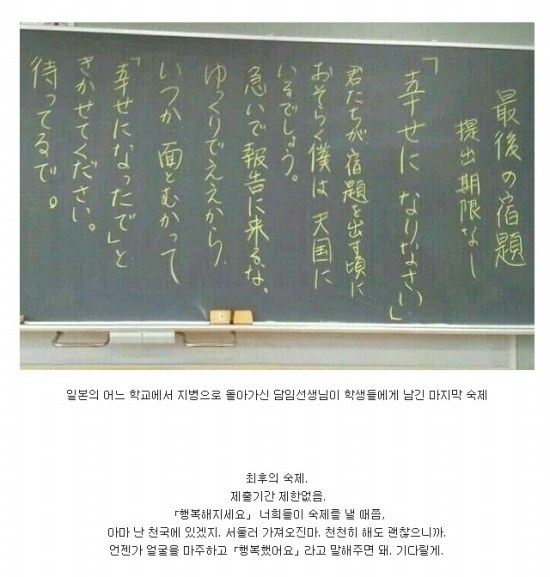 最後の宿題
提出期限なし
「幸せに なりなさい」
君たちが宿題を出す頃に
おそらく僕は 天国に
いるでしょう。
急いで報告に来るな。
ゆっくりでええから、
いつか 面とむかって
「幸せになったで」と
きかせてください。
待ってるで。
일본의 어느 학교에서 지병으로 돌아가신 담임선생님이 학생들에게 남긴 마지막 숙제
최후의 숙제.
제출기간 제한없음.
「행복해지세요」 너희들이 숙제를 낼 때쯤,
아마 난 천국에 있겠지. 서둘러 가져오진마. 천천히 해도 괜찮으니까.
언젠가 얼굴을 마주하고 「행복했어요」 라고 말해주면 돼. 기다릴게.